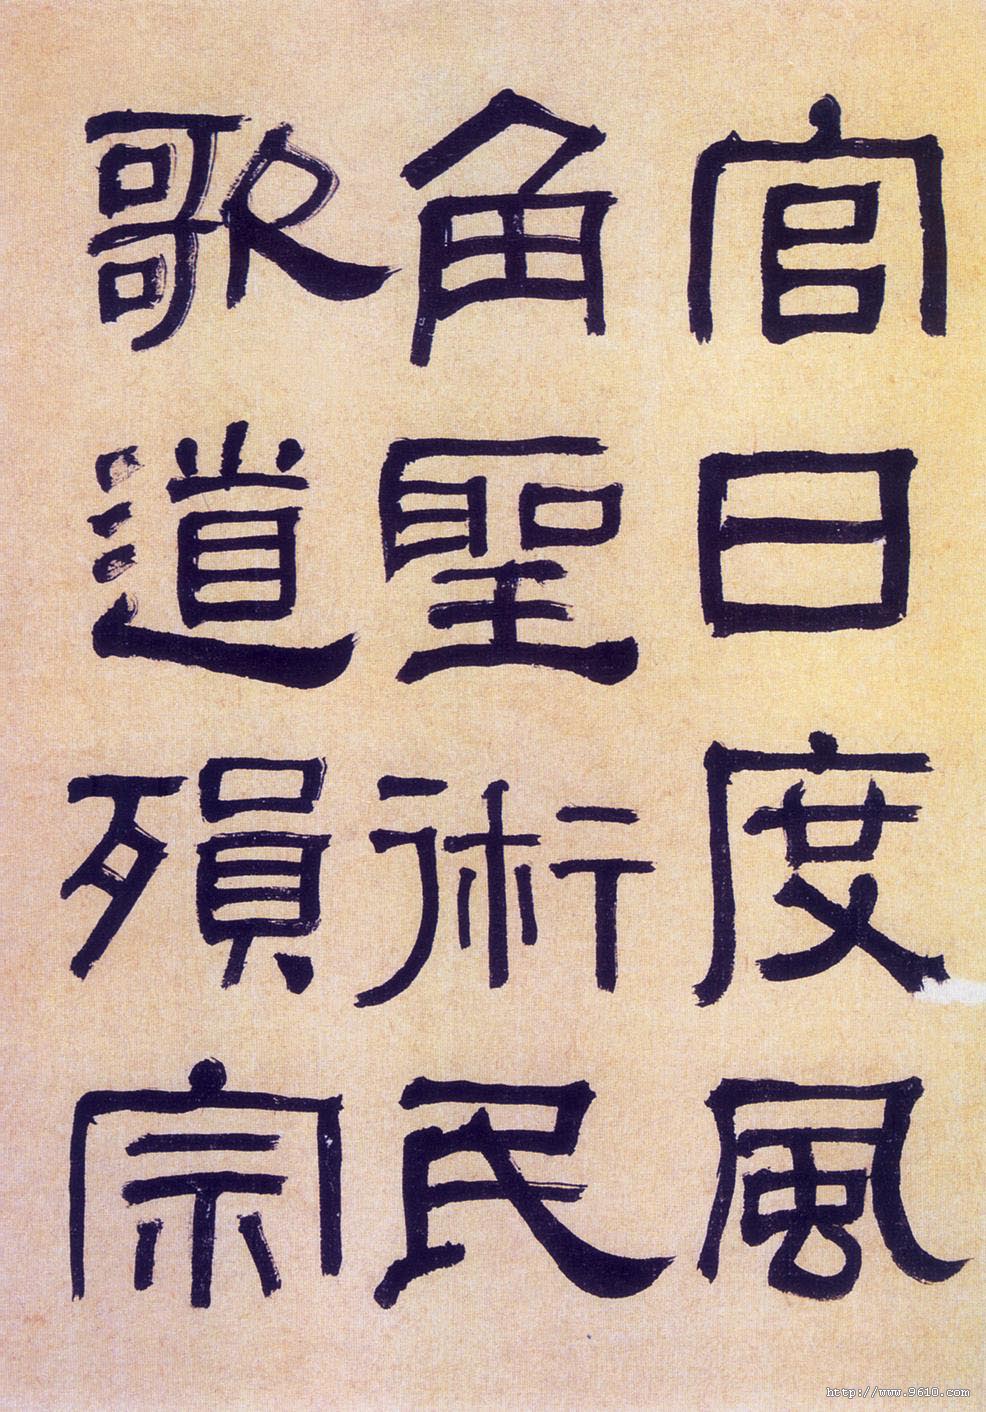 官日度風
角聖術民
歌道殞宗
http://www.9610.com